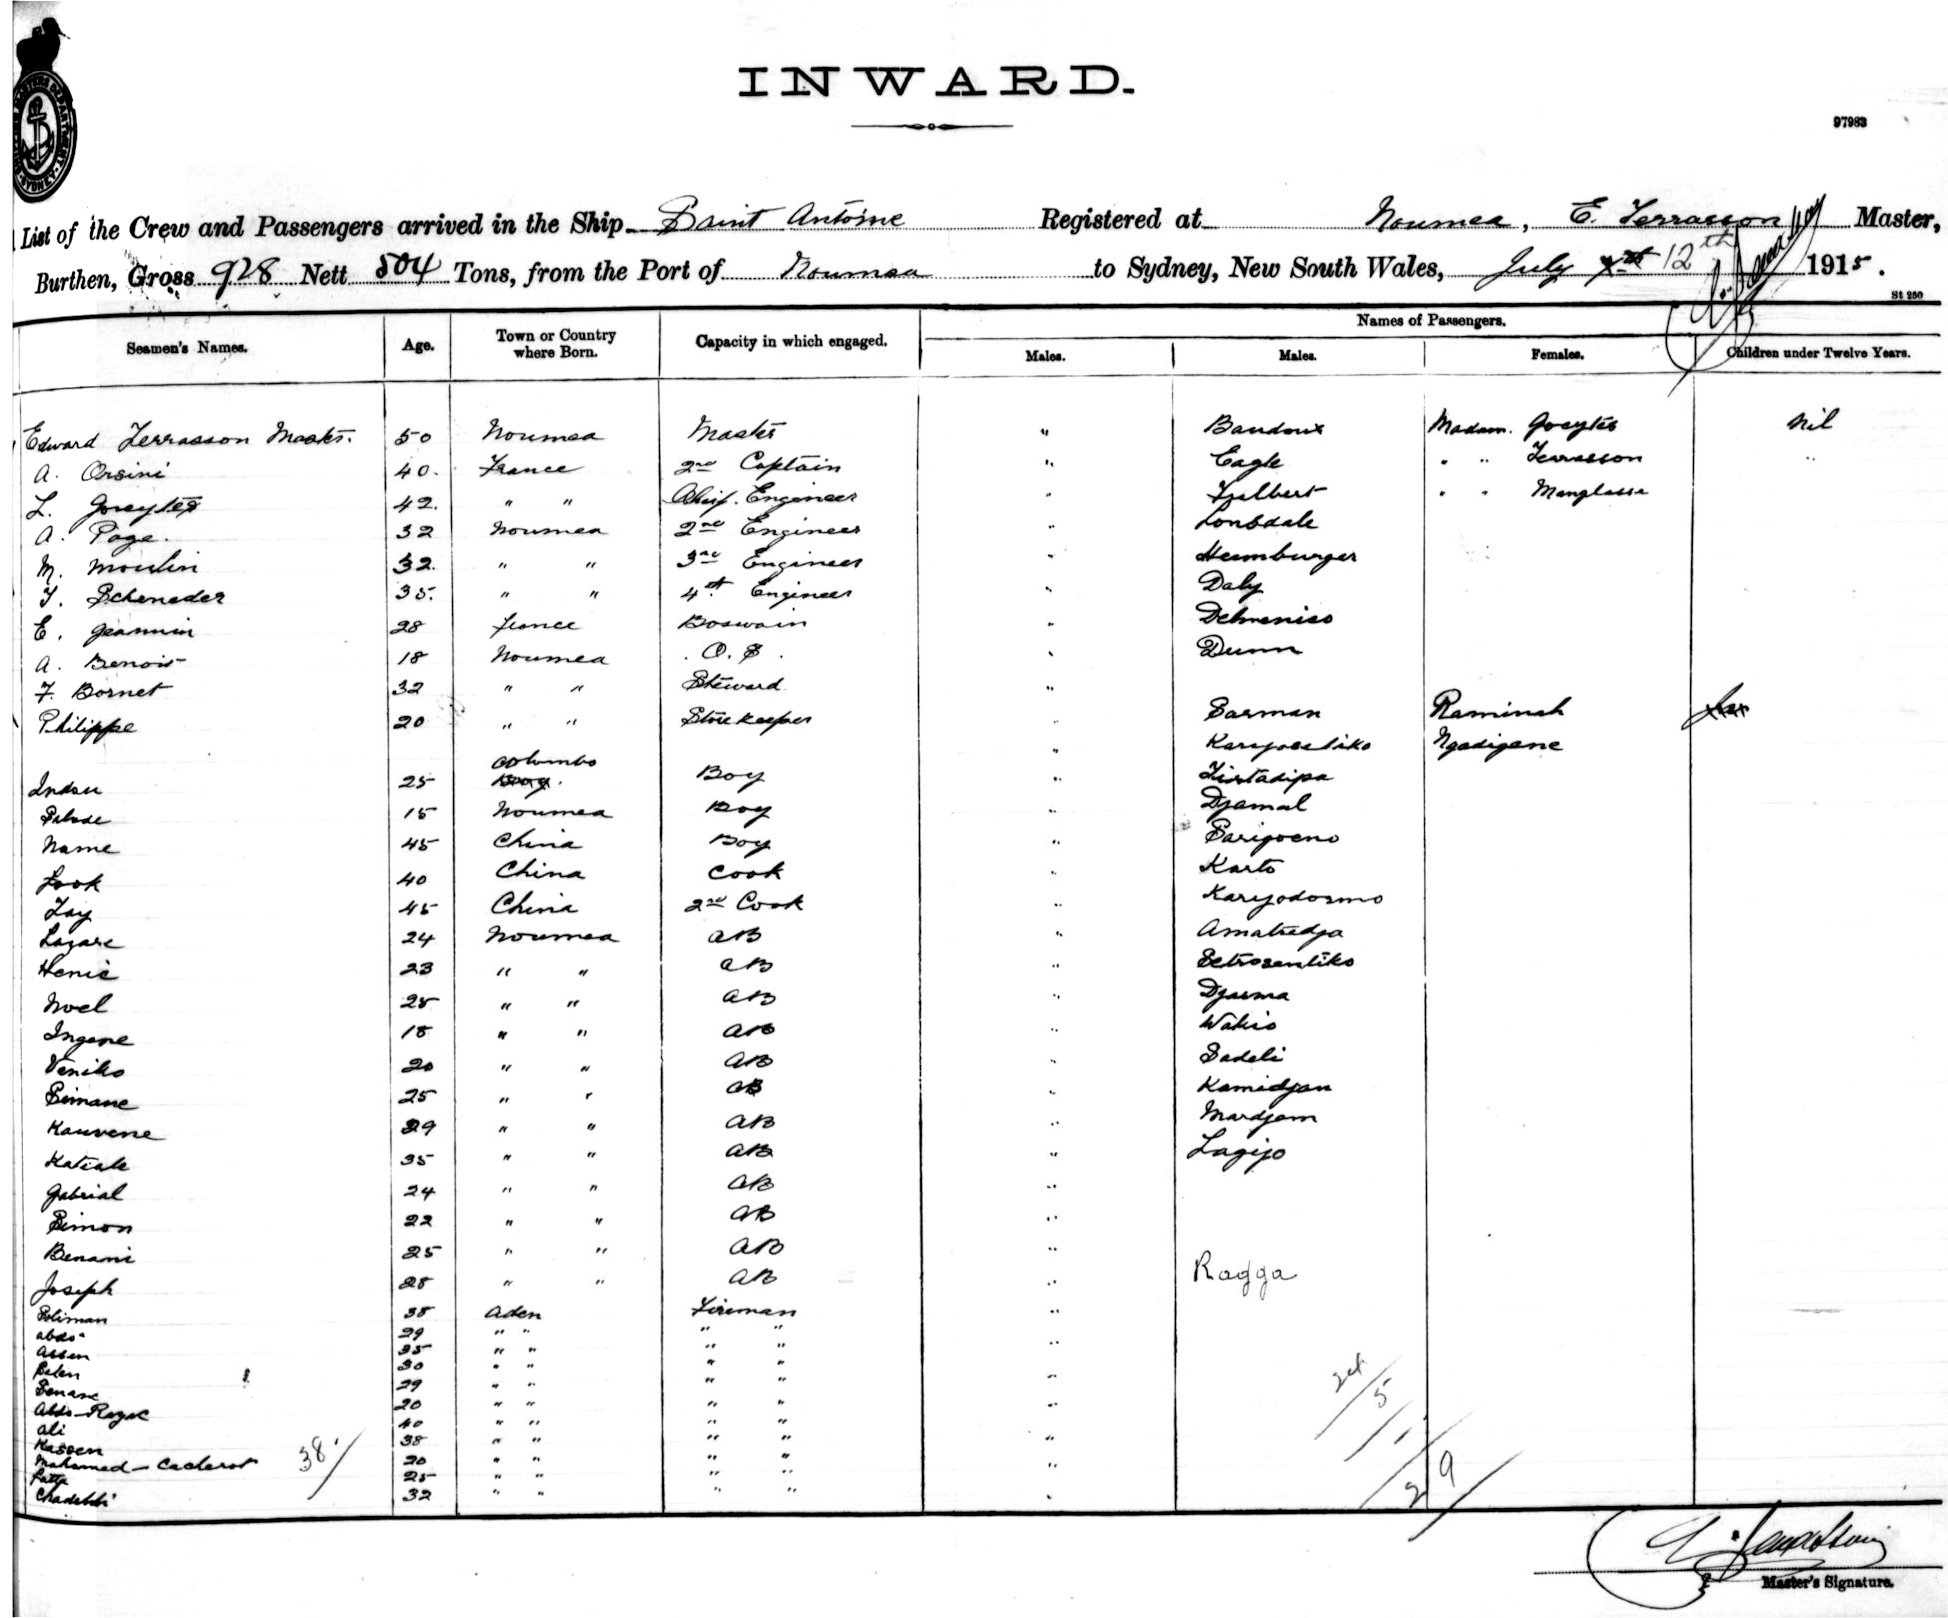 INWARD.
97983
List of the Crew and Passengers arrived in the Ship Saint Antoine Registered at Noumea, E. Terrasson Master,
Burthen, Gross 928 Nett 504 Tons, from the Port of Noumea to Sydney, New South Wales, July 12th 1915.
St 250
Seamen's Names. Age. Town or Country where Born. Capacity in which engaged. Names of Passengers.
Males. Males. Females. Children under Twelve Years.
Edward Terrasson Master. 50 Noumea Master " Baudoux Madam. Goeytes Nil
A. Orsini 40. France 2nd Captain " Eagle " " Terrasson "
L. Goeytes 42. " " Chief. Engineer " Fulbert " " Manglasse
A. Page. 32 Noumea 2nd Engineer " Lonsdale
M. Moulin 32. " " 3rd Engineer " Heimburger
F. Scheneder 35. " " 4th Engineer " Daly
E. Jeannin 28 France Boswain " Delmenico
A. Benoit 18 Noumea . O. S. " Dunn
F. Bornet 32 " " Steward "
Philippe 20 " " Store keeper " Sarman Raminah
" Karyosetiko Ngadigene
Indou 25 Colombo Boy " Tirtadipa
15 Noumea Boy " Djamal
Name 45 China Boy " Sarigoeno
Fook 40 China Cook " Karto
Tay 45 China 2nd Cook " Karyodosmo
Lazare 24 Noumea AB " Amatredja
Henie 23 " " AB " Setrosentiko
Noel 25 " " AB " Djasma
Ingene 18 " " AB " Wakio
Veniko 20 " " AB " Sadeli
Simane 25 " " AB " Kamidjan
Kauvene 29 " " AB " Mardjam
Katiale 35 " " AB " Lagijo
Gabrial 24 " " AB "
Simon 22 " " AB "
Benani 25 " " AB "
Joseph 28 " " AB " Ragga
Soliman 38 Aden Fireman "
Abdo 29 " " " "
Assen 35 " " " " "
Salen 30 " " " "
Senane 29 " " " " "
Abdo-Razac 20 " " " " "
Ali 40 " " " "
Kassen 38 " " " " "
Mahamed - Cacherot 20 " " " " "
Fatta 25 " " " "
Chadebbi 32 " " " " "
38/
24/5/1/
29/
Master's Signature.